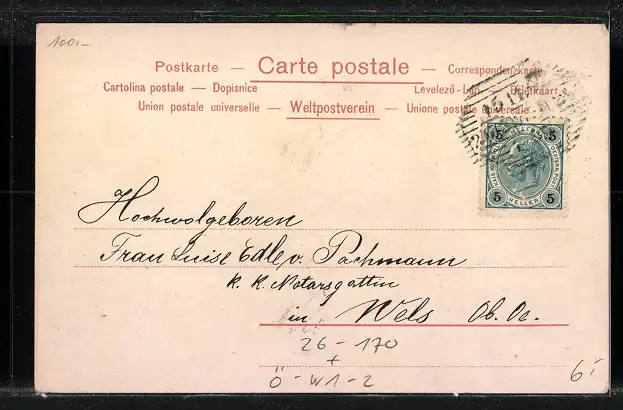 100.-
Postkarte — Carte postale — Correspondenzkarte
Cartolina postale — Dopisnice Levelező-Lap — Briefkaart
Union postale universelle — Weltpostverein — Unione postale universale
5 5
HELLER
5 5
Hochwolgeboren
Frau Luise Edle v. Pachmann
k. k. Notarsgattin
in Wels Ob. Oe.
26 - 170
+
Ö - W1 - 2
6.-